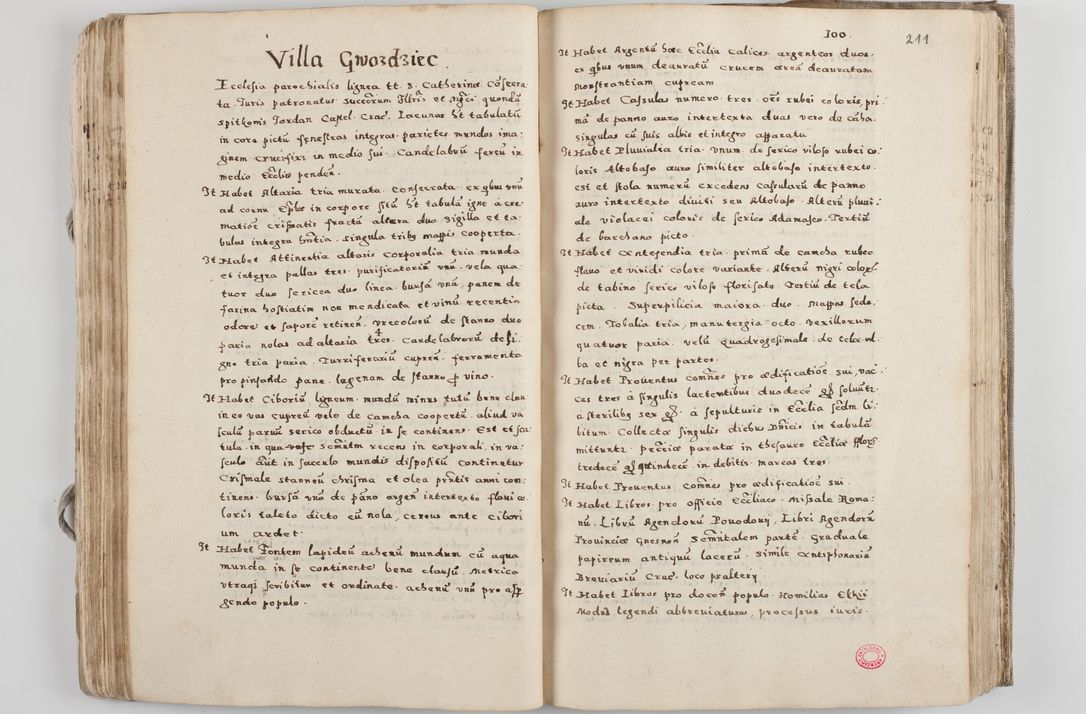 Villa Gwozdziec
Ecclesia parochialis lignea tt. S. Catherinæ Cõsecra
ta. Iuris patronatus succorum Illris et mgci quondã
spitkonis Jordan Castel. Crac. Lacunar ht tabulatũ
in coro pictũ fenestras integras. parietes mundos ima
ginem crucifixi in medio sui. Candelabrũ ferreũ in
medio Eccliæ penden.
It Habet Altaria tria murata. Consecrata. ex qbus unũ
ad cornu Eplæ in corpore situ ht tabulã igne â cre
matiõe crismatis fractã altera duo sigilla et ta
bulas integra hntia. singula tribg mappis cooperta.
It Habet Attinentia altaris Corporalia tria munda
et integra pallas tres. purificatoriũ unũ. vela qua
tuor duo sericea duo linea. bursã unã, panem de
farina hostiatim non mendicata et vinũ recentin
odore et sapore retinen. vrceoloru de stanno duo
paria nolas ad altaria tres. Candelabrorũ de li
gno tria paria. Turriferariũ cupreũ. ferramenta
pro pinsando pane. lagenam de stanno p vino.
It Habet Ciboriũ ligneum. mundũ minus tutũ bene clau
in eo vas cupreũ velo de camcha coopertũ. aliud va
sculũ parvũ serico obductũ in se continens. Est et sca
tula. in qua semntm recens in corporali, in va
sculo aũt in sacculo mundis dispositũ continetur
Crismale stanneũ chrisma et olea prntis anni con
tinens. bursã unã de pãno argen intertexto flavi co
loris taleto dicto cũ nola, cereus ante cibori
um ardet.
It Habet Fontem lapideũ achenũ mundum cũ aqua
munda in se continente bene clausũ. Metrica
utraqz scribitur et ordinate. achenũ unũ pro asp
gendo populo.
100. 211
It Habet Argentũ hæc Ecclia Calices argenteos duos.
ex qbus unum deauratũ crucem æreã deauratam
monstrantiam cupream
It Habet Casulas numero tres. oes rubei coloris, pri
mã de panno auro intertexta duas vero de cãha.
singulas cũ suis albis et integro apparatu
It Habet Pluvialia tria. unum. de serico viloso rubei co
loris Altobaso auro similiter altobaso intertexto.
est et stola numerũ excedens casularũ de panno
auro intertexto diviti seu Altobaso. Alterũ pluvi
ale violacei coloris de serico Adamasco. Tertiũ
de barchano picto.
It Habet Antependia tria. primã de camcha rubeo
flavo et viridi colore variante. Alterũ nigri coloris
de tabino serico viloso florisato. Tertiũ de tela
picta. Superpilicia maiora duo. Mappas sede
cem. Tobalia tria, manutergia octo. vexillorum
quatuor paria. velũ quadragesimale. de tela al
ba et nigra per partes.
It Habet Proventus comnes pro ædificatiõe sui, vac
cas tres à singulis lactentibus duodecẽ gs soluuntr.
a sterilibg sex gs. à sepulturis in Ecclia scdm li
bitum. Collectæ singulis diebus Dnicis in tabulã
mittuntr. pecuia parata in thesauro Eccliæ flors
tredecẽ gs quindecẽ. in debitis marcas tres.
It Habet Proventus comnes pro ædificatiõe sui.
It Habet Libros pro officio Eccliaco. Missale Roma:
nũ. Librũ Agendorũ Povodovij, Libri Agendorũ
Provinciæ Gnesnen semntalem partẽ. Graduale
papireum antiquũ lacerũ. simile Antiphonariũ
Breviariũ Crac. loco psaltery
It Habet Libros pro docen populo. Homilias Ekkii
Modus legendi abbreviaturas, processus iuris.